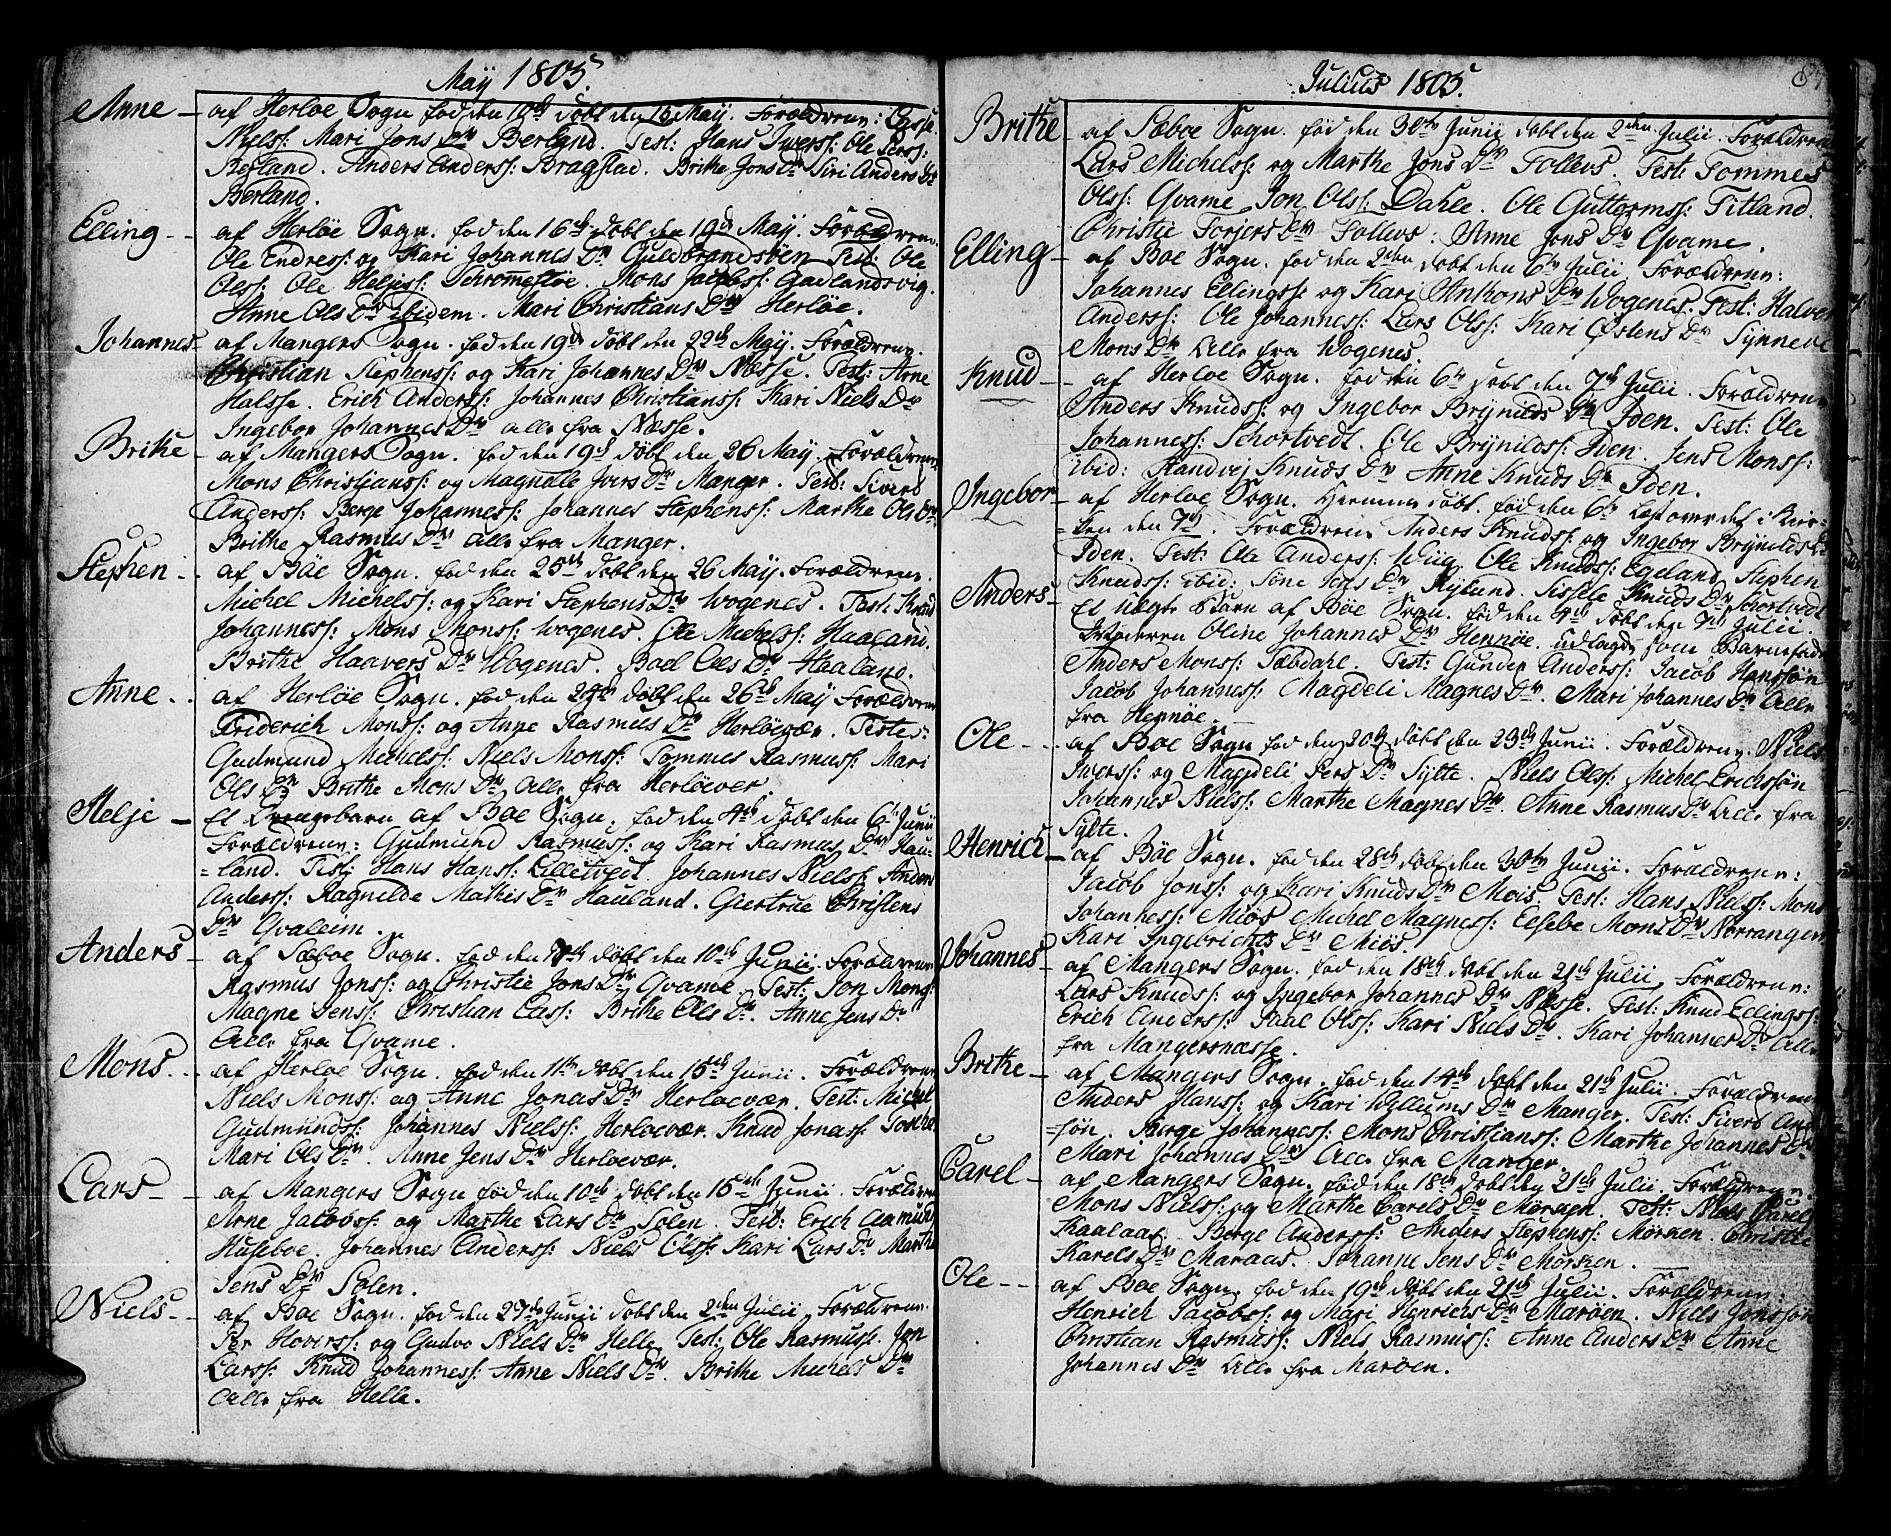 May 1805.
Anne - af Herloe Sogn fød den 10de døbt den 16 May. Forældrene:
Niels: Mari Jons Dtr Berland. Test: Hans Iwerss: Ole Perss:
Berland. Anders Anderss: Bragstad. Brithe Jons Dr Siri Anders Dr
Berland.
Elling - af Herløe Sogn. fød den 16de døbt den 19d May. Forældrene.
Ole Endress: og Kari Johannes Dr Guldbrandsøen Test: Ole
Olss: Ole Heljess: Schromesøe. Mons Jacobss: Gadlandsvig.
Anne Ols Dr ibidem. Mari Christians Dr Herløe.
Johannes af Mangers Sogn. fød den 19d døbt den 22de May. Forældrene.
Christian Stephenss: og Kari Johannes Dtr Næsse. Test: Arne
Halsse. Erich Anderss: Johannes Christianss: Kari Niels Dr
Ingebor Johannes Dtr alle fra Næsse.
Brithe - af Mangers Sogn. fød den 19d døbt den 26 May. Forældrene
Mons Christianss: og Magdele Ivers Dr Manger. Test: Sivert
Anderss: Berge Johanness: Johannes Stephenss: Marthe Ols Dr
Brithe Rasmus Dr alle fra Manger.
Stephen - af Böe Sogn. fød den 25de døbt den 26 May. Forældrene.
Michel Michelss: og Kari Stephens Dr Wogenes. Test: Knud
Johanness: Mons Monss: Wogenes. Ole Michelss: Haaland.
Brithe Haavers Dr Wogenes. Boel Ols Dr Haaland.
Anne - af Herløe Sogn. fød den 24de døbt den 26de May Forældrene
Friderich Monss: og Anne Rasmus Dr Herløevær. Testes:
Gudmund Michelss: Niels Monss: Tommes Rasmuss: Mari
Ols Dr Brithe Mons Dr Alle fra Herløever.
Helje - Et Drengebarn af Boe Sogn. fød den 4de døbt den 6te Junii
Forældrene: Gudmund Rasmuss: og Kari Rasmus Dr Hau-
-land. Test: Hans Hanss: Lilletvedt. Johannes Nielss: Anders
Anderss: Ragnilde Mathis Dr Hauland. Giertrue Christens
Dtr Qvalem.
Anders - af Sæboe Sogn. fød den døbt den 10de Junii. Forældrene
Rasmus Jonss: og Christie Jons Dr Qvame. Test: Jon Mons
Magne Jenss: Christian Larss: Brithe Ols Dr. Anne Jens Dr
Alle fra Qvame.
Mons - af Herloe Sogn. fød den 11de døbt den 15de Junii. Forældrene
Niels Monss: og Anne Jonas Dr Herloevær. Test: Michel
Gudmundss: Johannes Nielss: Herloevær. Knud Jonass:
Mari Ols Dr. Anne Jens Dr Herloevær.
Lars - af Mangers Sogn fød den 10de døbt den 15de Junii. Forældrene
Arne Jacobss: og Marthe Lars Dr Solen. Test: Erich Aamund
Huseboe. Johannes Anderss: Niels Olss: Kari Lars Dr Marthe
Jens Dr Solen.
Niels - af Boe Sogn. fød den 27de Junii døbt den 2den Julii. Forældrene.
Per Hoverss: og Gudve Niels Dr Helle. Test: Ole Rasmuss: Jon
Larss: Knud Johanness: Anne Niels Dr. Brithe Michels Dr
Alle fra Helle.
Julius 1805.
Brithe - af Sæboe Sogn. fød den 30te Junii døbt den 2den Julii. Forældrene
Lars Michelss: og Marthe Jons Dtr Tollevs. Test: Tommes
Olss: Qvame Jon Olss: Dahle. Ole Guttermss: Titland.
Christie Torjers Dtr Tollevs: Anne Jons Dr Qvame.
Elling - af Boe Sogn. fød den 2den døbt den 6te Julii. Forældrene:
Johannes Ellingss og Kari Ankons Dr Wogenes. Test: Halver
Anderss: Ole Johanness: Lars Olss: Kari Østens Dr Synneve
Mons Dr Alle fra Wogenes.
Knud - af Herloe Sogn. fød den 6te døbt den 7de Julii. Forældrene
Anders Knudss: og Ingebor Brynilds Dtr Iden. Test: Ole
Johanness: Schortvedt. Ole Brynildss: Iden. Jens Monss:
ibid: Randvej Knuds Dr Anne Knuds Dr Iden.
Ingebor - af Herloe Sogn. Hjemme døbt. fød den 6te læst over det i Kir-
-ken den 7de. Forældrene Anders Knudss: og Ingebor Brynilds Dr
Iden. Test: Ole Anderss: Wiig Ole Knudss: Egeland Stephen
Knudss: ibid: Søne Dr Rylund. Sissele Knuds Dr Schortvedt
Anders - Et Uægte Barn af Böe Sogn. fød den 4de døbt den 7de Julii.
Moderen Oline Johannes Dr Hennøe. udlagde som Barnefader
Anders Monss: Tæbdahl. Test: Gunder Anderss: Jacob Hanssøn
Jacob Johanness: Magdeli Magnes Dtr. Mari Johannes Dr Alle
fra Hennøe.
Ole - af Boe Sogn fød den 20de døbt den 23de Junii. Forældrene. Niels
Iwerss: og Magdeli Pers Dr Sylte. Niels Olss: Michel Erichssøn
Johannes Nielss: Marthe Magnes Dtr. Anne Rasmus Dr Alle fra
Sylte.
Henrich - af Böe Sogn. fød den 28de døbt den 30te Junii. Forældrene:
Jacob Jonss: og Kari Knuds Dr Mois. Test: Hans Nielss: Mons
Johanness: Miös Michel Magness: Elsebe Mons Dr Norrangen
Kari Ingebrichts Dr Miös.
Johannes - af Mangers Sogn. fød den 18de døbt den 21de Julii. Forældrene:
Lars Knudss: og Ingebor Johannes Dr Næsse. Test: Knud Ellingss:
Erich Anderss: Paal Olss: Kari Niels Dtr. Kari Johannes Dr Alle
fra Mangersnæsse.
Brithe - af Mangers Sogn. fød den 14de døbt den 21de Julii. Forældrene
Anders Hanss: og Kari Willums Dr Manger. Test: Siverd And
-søn. Berge Johanness: Mons Christianss: Marthe Johannes Dr
Mari Johannes Dr Alle fra Manger.
Carel - af Mangers Sogn. fød den 18de døbt den 21de Julii. Forældrene.
Mons Nielss: og Marthe Carels Dr Mørken. Test: Niels Carels
Kaalaas. Berge Anderss: Anders Stephenss: Mørken. Christie
Karels Dr Maraas. Johanne Jens Dr Mørsken.
Ole - - af Boe Sogn. fød den 19de døbt den 21de Julii. Forældrene:
Henrich Jacobss: og Mari Henrichs Dr Marøen. Niels Jonssøn
Christian Rasmuss: Niels Rasmuss: Anne Anders Dr Anne
Johannes Dr Alle fra Marøen.